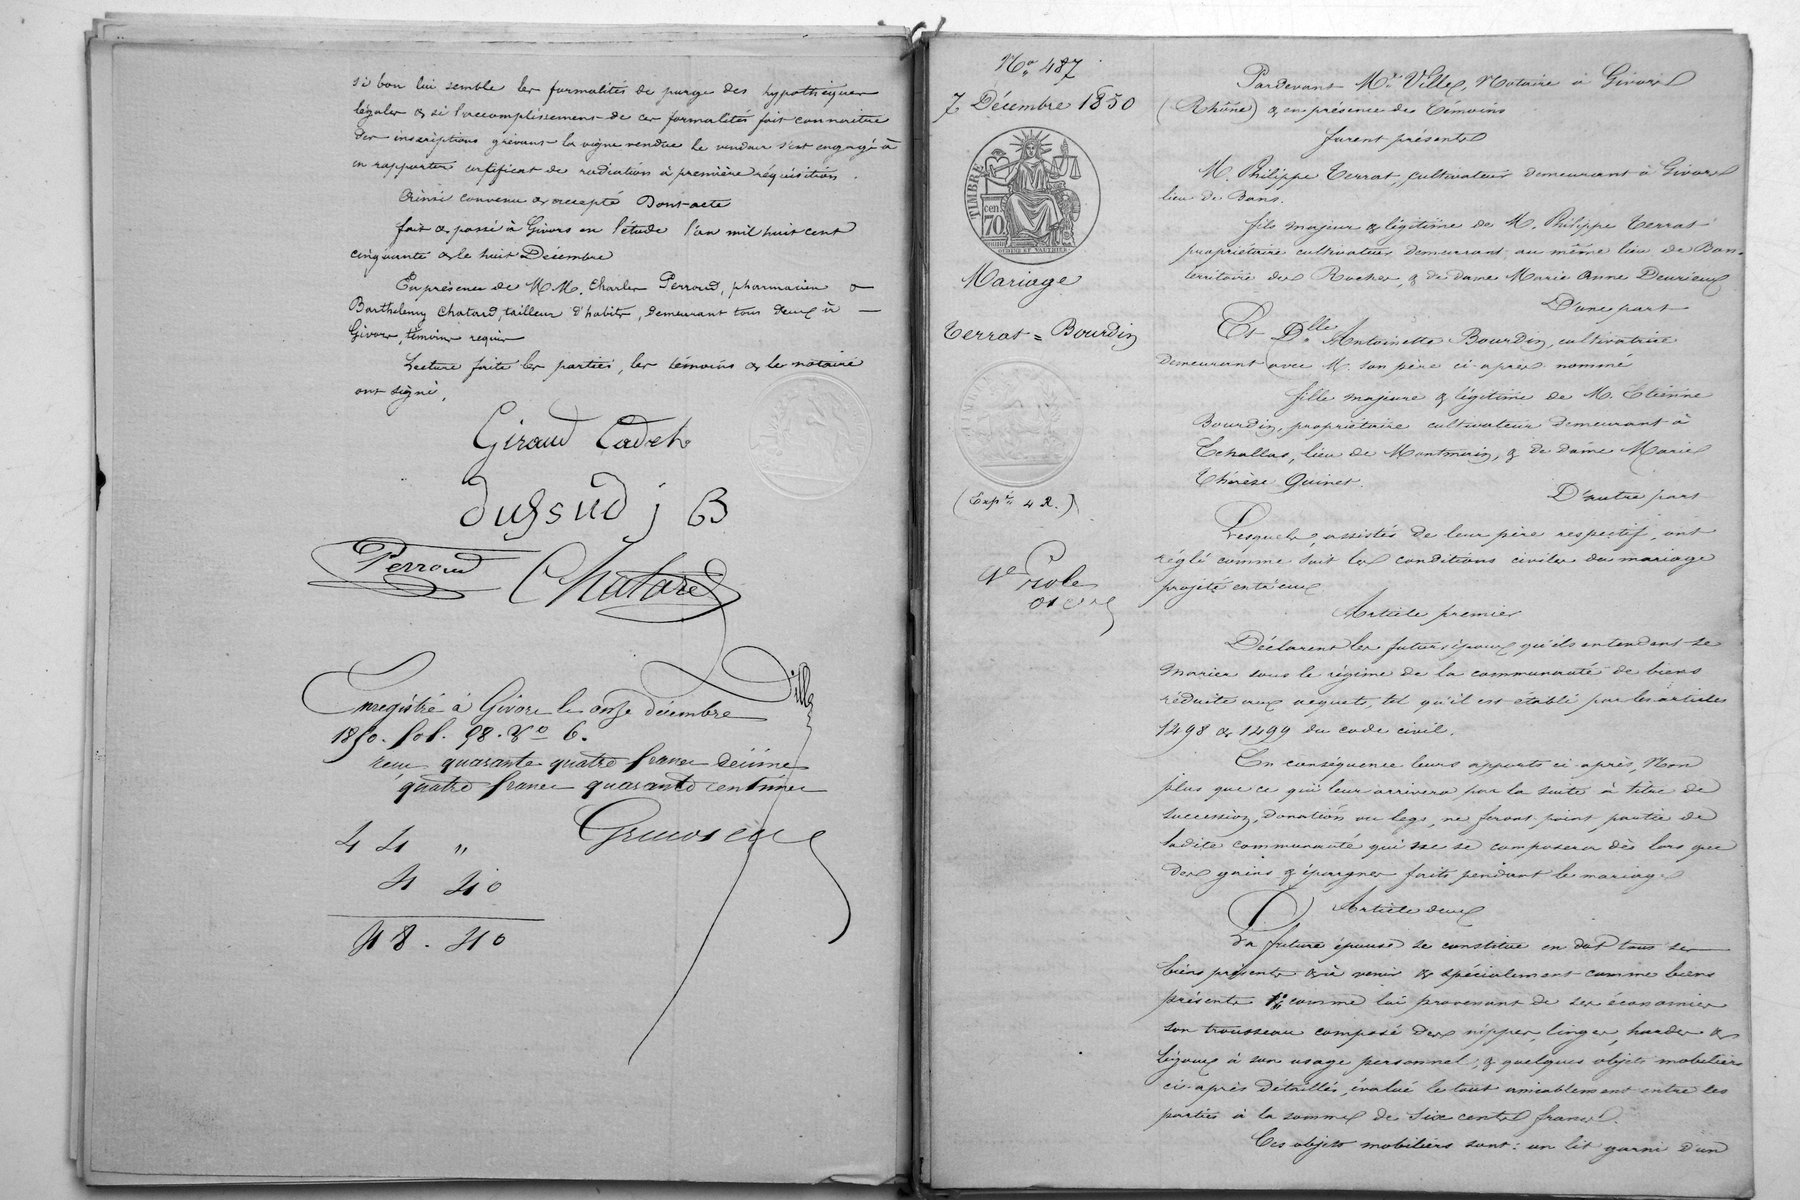 si bon lui semble les formalités de purge des hypothèques
légales & si l'accomplissement de ces formalités fait connaître
des inscriptions grevant la vigne vendue le vendeur s'est engagé à
en rapporter certificat de radiation à première réquisition.
Ainsi convenu & accepté Dont acte
fait & passé à Givors en l'étude l'an mil huit cent
cinquante & le huit Décembre
En présence de M.M. Charles Perroud, pharmacien &
Barthelemy Chatard, tailleur d'habits, demeurant tous deux à
Givors, témoins requis
Lecture faite les parties, les témoins & le notaire
ont signé,
Giraud Cadet
dussud j B
Perroud Chatard
Ville
Enregistré à Givors le onze décembre
1850. fol. 98. Vo 6.
reçu quarante quatre francs décime
quatre francs quarante centimes
44 "
4 40
48. 40
No 487
7 Décembre 1850
TIMBRE
cen
70
Mariage
Terrat = Bourdin
(Expon 4 R.)
Pardevant Me Ville, Notaire à Givors
(Rhône) & en présence des témoins
furent présents
M. Philippe Terrat, cultivateur demeurant à Givors
lieu de Bans.
fils majeur & légitime de M. Philippe Terrat
propriétaire cultivateur demeurant au même lieu de Bans
territoire des Rochers, & de dame Marie Anne Devrieux
D'une part
Et Dlle Antoinette Bourdin, cultivatrice
demeurant avec M. son père ci-après nommé
fille majeure & légitime de M. Etienne
Bourdin, propriétaire cultivateur demeurant à
Echallas, lieu de Montmain, & de dame Marie
Thérèse Quinet.
D'autre part
Lesquels, assistés de leur père respectif, ont
réglé comme suit les conditions civiles du mariage
projeté entre eux
Article premier
Déclarent les futurs époux qu'ils entendent se
marier sous le régime de la communauté de biens
réduite aux acquets, tel qu'il est établi par les articles
1498 & 1499 du code civil.
En conséquence leurs apports ci après, Non
plus que ce qui leur arrivera par la suite à titre de
succession, donation ou legs, ne feront point partie de
ladite communauté qui ne se composera dès lors que
des gains & épargnes faits pendant le mariage
Article deux
La future épouse se constitue en dot tous ses
biens présents & à venir & spécialement comme biens
présents 1o comme lui provenant de ses économies
son trousseau composé des nippes, linges, hardes &
bijoux à son usage personnel, & quelques objets mobiliers
ci-après détaillés, évalué le tout amiablement entre les
parties à la somme de six cents francs.
Ces objets mobiliers sont : un lit garni d'un